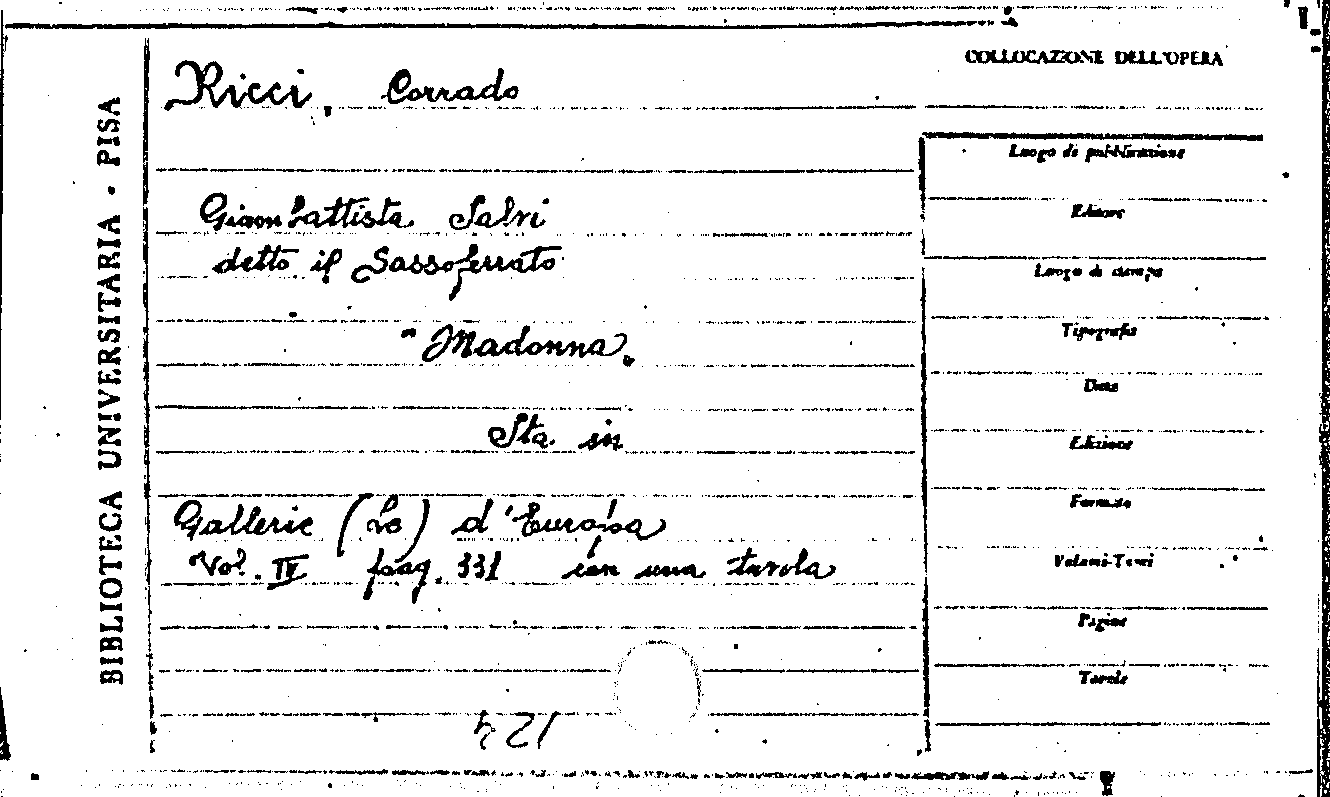 BIBLIOTECA UNIVERSITARIA - PISA
COLLOCAZIONE DELL'OPERA
Ricci, Corrado
Giambattista Salvi
detto il Sassoferrato
"Madonna"
Sta in
Gallerie (Le) d'Europa
Vol. IV pag. 331 con una tavola
Luogo di pubblicazione
Editore
Luogo di stampa
Tipografia
Data
Edizione
Formato
Volumi-Tomi
Pagine
Tavole